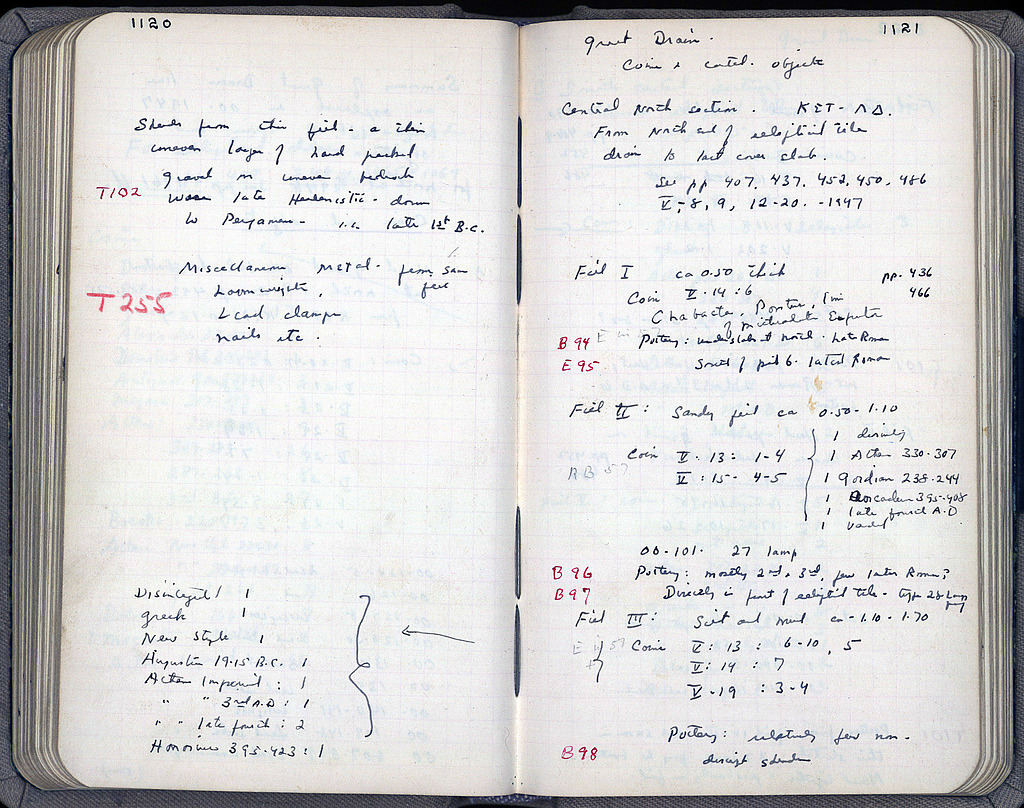 1120
Sherds from this fill - a thin
uneven layer of hard packed
gravel on uneven bedrock
T102
were late Hellenistic - down
to Pergamene - i.e. late 1st B.C.
Miscellaneous metal. from same
fill
T255
Loomweights,
Lead clamps
nails etc.
Disintegrated 1
Greek 1
New Style 1
Augustan 19-15 B.C. 1
Athen Imperial : 1
" " 3rd A.D : 1
" " late fourth : 2
Honorius 395-423 : 1
1121
Great Drain.
Coins & catal. objects
Central North section. KET - ΛΔ.
From north end of elliptical tile
drain to last cover slab.
See pp 407, 437, 452, 450, 486
V-8, 9, 12-20. -1947
Fill I ca 0.50 thick pp. 436
466
Coin V-14 : 6
Chabacta, Pontus, time
of Mithradates Eupator
B 94
Pottery: under slab at north. Late Roman
E 95
South of pit 6. latest Roman
Fill II : Sandy fill ca 0.50-1.10
Coin V-13: 1-4
V-15- 4-5
AB 57
1
1 Athen 330-307
1 Gordian 238-244
1 Arcadius 395-408
1 late fourth A.D
1 Vandal
00-101. 27 lamp
B 96
Pottery: mostly 2nd & 3rd, few later Roman?
B 97
Directly in front of elliptical tile - type 28 lamp
Fill III: Silt and mud ca 1.10-1.70
E in 57
Coin V: 13 : 6-10, 5
V: 14 : 7
V-19 : 3-4
B 98
Pottery: relatively few non-
descript sherds